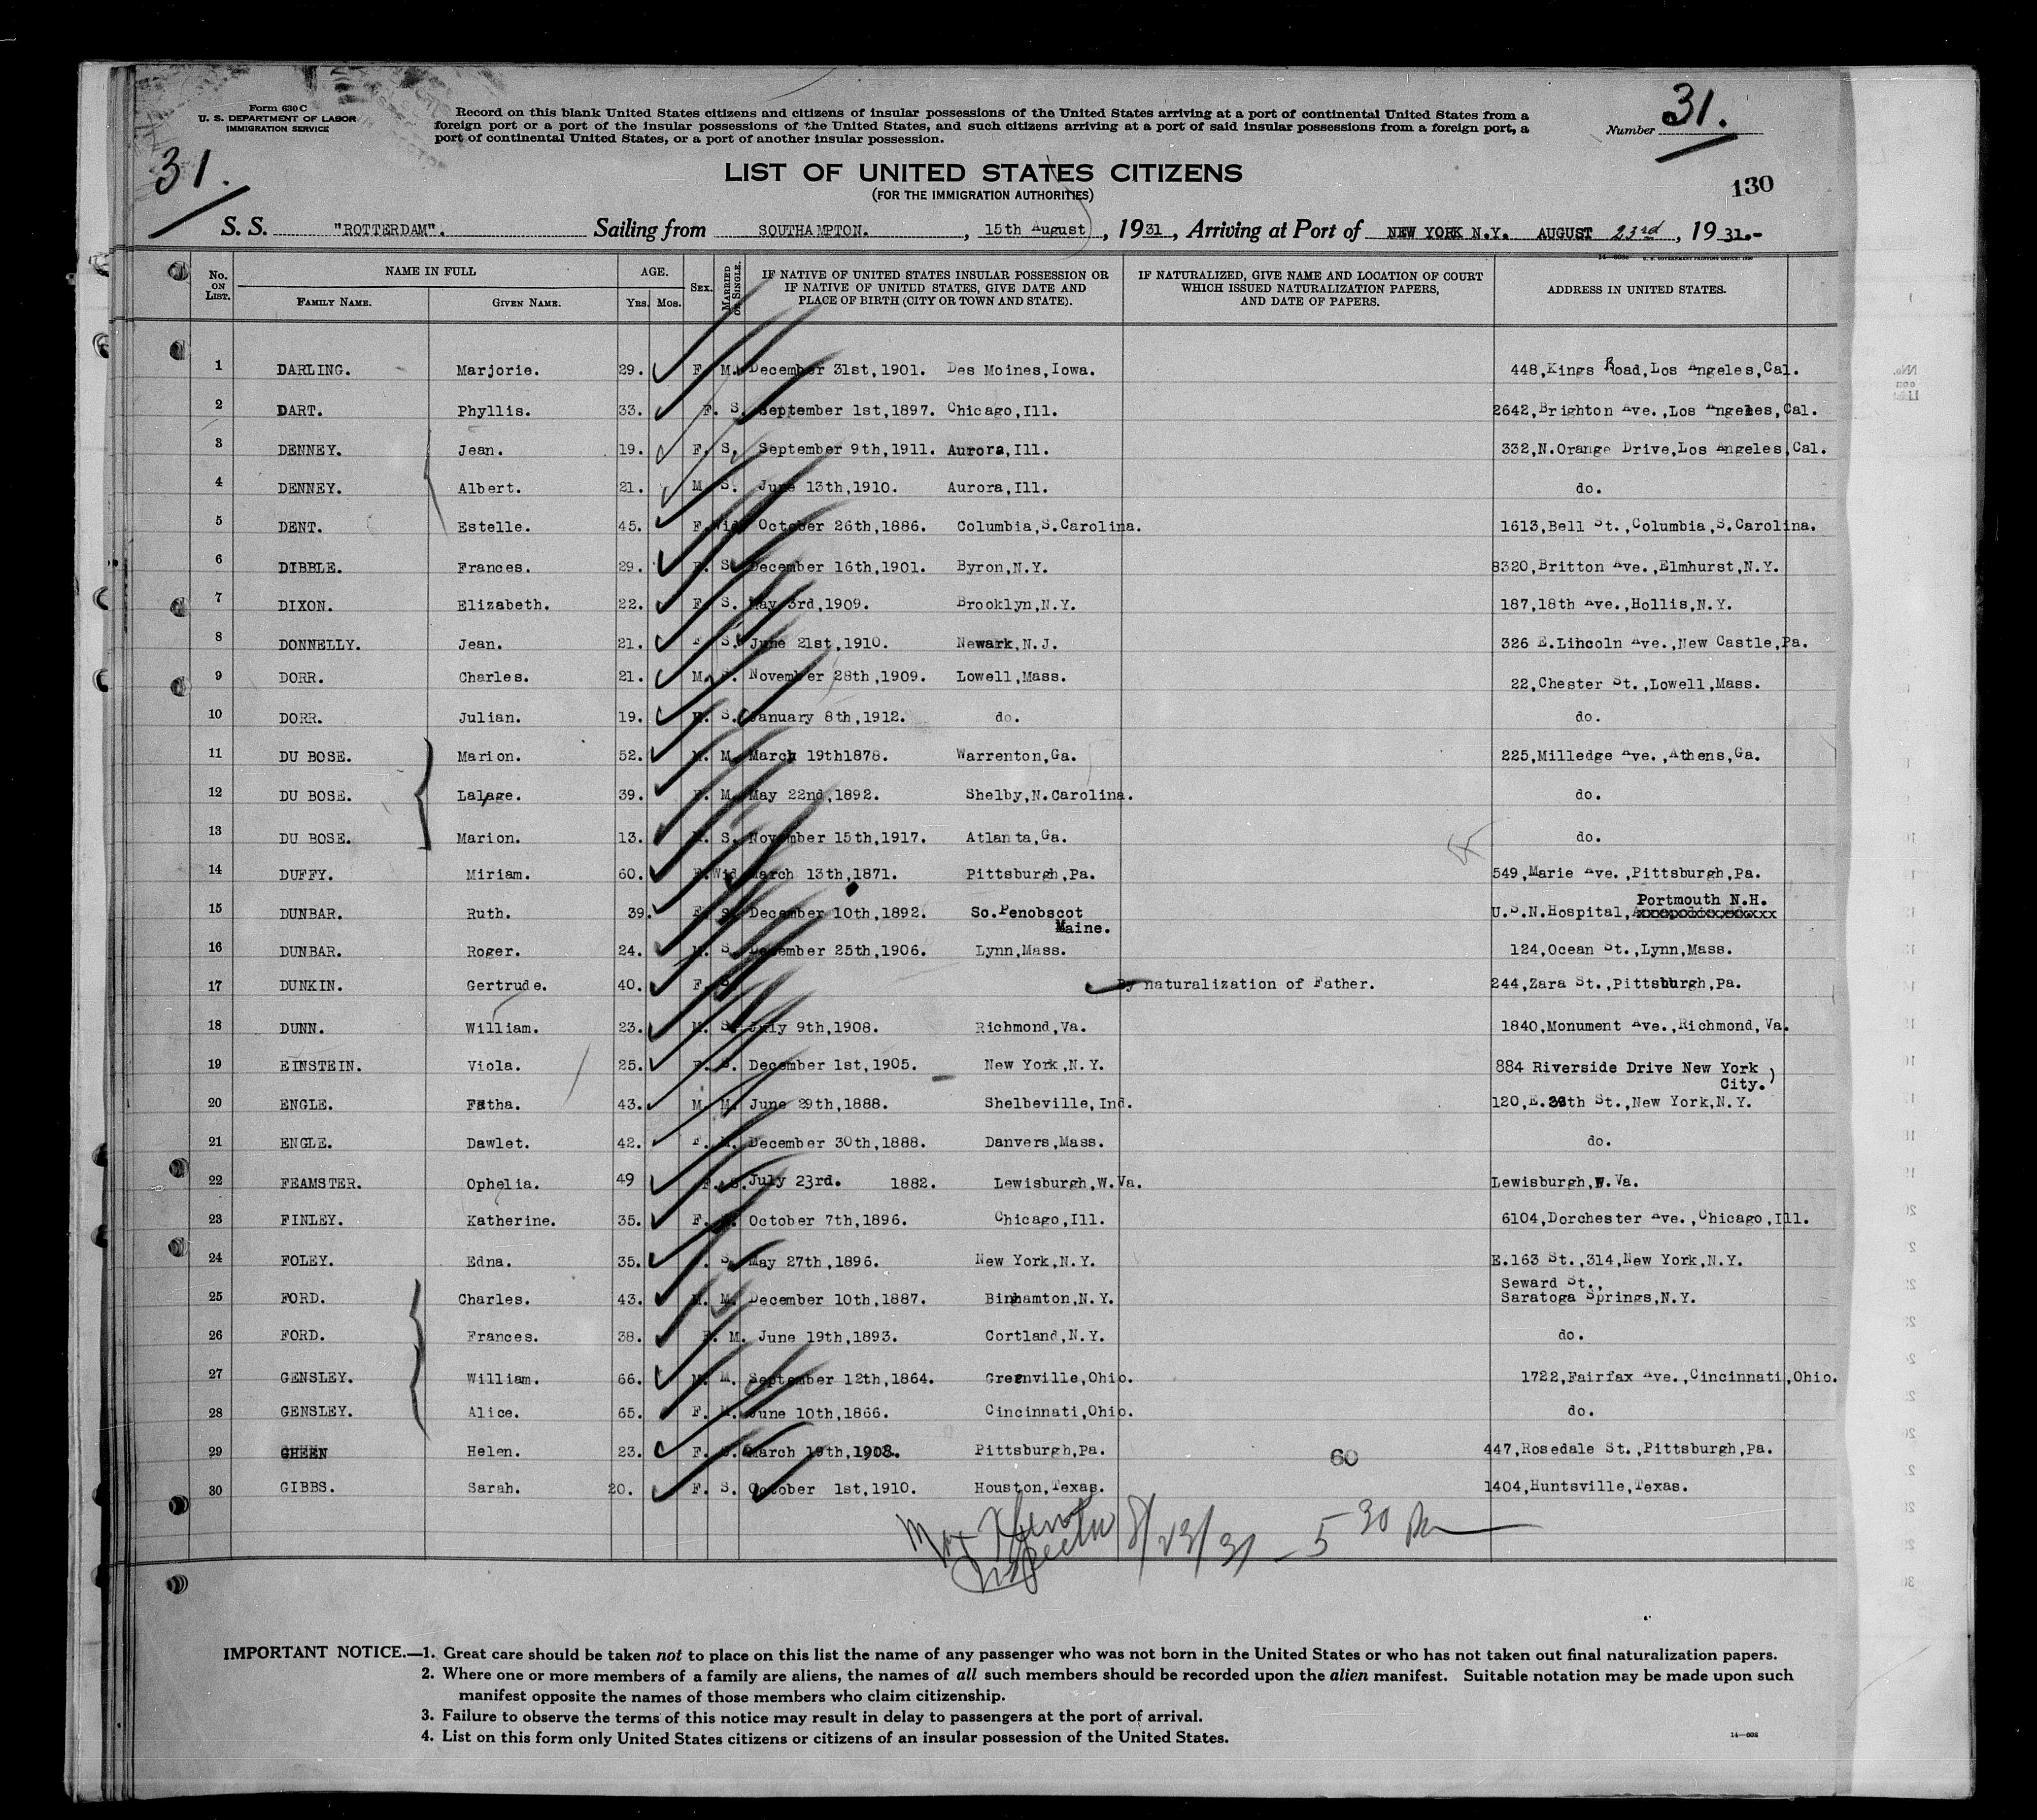 Form 630 C
U. S. DEPARTMENT OF LABOR
IMMIGRATION SERVICE
Record on this blank United States citizens and citizens of insular possessions of the United States arriving at a port of continental United States from a
foreign port or a port of the insular possessions of the United States, and such citizens arriving at a port of said insular possessions from a foreign port, a
port of continental United States, or a port of another insular possession.
Number 31.
31.
LIST OF UNITED STATES CITIZENS
(FOR THE IMMIGRATION AUTHORITIES)
130
S. S. "ROTTERDAM". Sailing from SOUTHAMPTON. , 15th August , 1931 , Arriving at Port of NEW YORK N.Y. AUGUST 23rd , 1931.-
No. ON LIST. NAME IN FULL FAMILY NAME. GIVEN NAME. AGE. Yrs. Mos. SEX. MARRIED OR SINGLE. IF NATIVE OF UNITED STATES INSULAR POSSESSION OR IF NATIVE OF UNITED STATES, GIVE DATE AND PLACE OF BIRTH (CITY OR TOWN AND STATE). IF NATURALIZED, GIVE NAME AND LOCATION OF COURT WHICH ISSUED NATURALIZATION PAPERS, AND DATE OF PAPERS. ADDRESS IN UNITED STATES.
1 DARLING. Marjorie. 29. F. M. December 31st,1901. Des Moines,Iowa. 448,Kings Road,Los Angeles,Cal.
2 DART. Phyllis. 33. F. S. September 1st,1897. Chicago,Ill. 2642,Brighton Ave.,Los Angeles,Cal.
3 DENNEY. Jean. 19. F. S. September 9th,1911. Aurora,Ill. 332,N.Orange Drive,Los Angeles,Cal.
4 DENNEY. Albert. 21. M. S. June 13th,1910. Aurora,Ill. do.
5 DENT. Estelle. 45. F. Wid. October 26th,1886. Columbia,S.Carolina. 1613,Bell St.,Columbia,S.Carolina.
6 DIBBLE. Frances. 29. F. S. December 16th,1901. Byron,N.Y. 8320,Britton Ave.,Elmhurst,N.Y.
7 DIXON. Elizabeth. 22. F. S. May 3rd,1909. Brooklyn,N.Y. 187,18th Ave.,Hollis,N.Y.
8 DONNELLY. Jean. 21. F S. June 21st,1910. Newark,N.J. 326 E.Lincoln Ave.,New Castle,Pa.
9 DORR. Charles. 21. M. S. November 28th,1909. Lowell,Mass. 22,Chester St.,Lowell,Mass.
10 DORR. Julian. 19. M. S. January 8th,1912. do. do.
11 DU BOSE. Marion. 52. M. M. March 19th1878. Warrenton,Ga. 225,Milledge Ave.,Athens,Ga.
12 DU BOSE. Lalage. 39. F. M. May 22nd,1892. Shelby,N.Carolina. do.
13 DU BOSE. Marion. 13. M. S. November 15th,1917. Atlanta,Ga. do.
14 DUFFY. Miriam. 60. F. Wid. March 13th,1871. Pittsburgh,Pa. 549,Marie Ave.,Pittsburgh,Pa.
15 DUNBAR. Ruth. 39. F. S. December 10th,1892. So.Penobscot Maine. U.S.N.Hospital, Portmouth N.H.
16 DUNBAR. Roger. 24. M. S. December 25th,1906. Lynn,Mass. 124,Ocean St.,Lynn,Mass.
17 DUNKIN. Gertrude. 40. F. S. By naturalization of Father. 244,Zara St.,Pittsburgh,Pa.
18 DUNN. William. 23. M. S. July 9th,1908. Richmond,Va. 1840,Monument Ave.,Richmond,Va.
19 EINSTEIN. Viola. 25. F. S. December 1st,1905. New York,N.Y. 884 Riverside Drive New York City.
20 ENGLE. 43. M. M. June 29th,1888. Shelbeville,Ind. 120,E. St.,New York,N.Y.
21 ENGLE. Dawlet. 42. F. M. December 30th,1888. Danvers,Mass. do.
22 FEAMSTER. Ophelia. 49 F. S. July 23rd. 1882. Lewisburgh,W.Va. Lewisburgh,W.Va.
23 FINLEY. Katherine. 35. F. October 7th,1896. Chicago,Ill. 6104,Dorchester Ave.,Chicago,Ill.
24 FOLEY. Edna. 35. F. S. May 27th,1896. New York,N.Y. E.163 St.,314,New York,N.Y.
25 FORD. Charles. 43. M. M. December 10th,1887. Binhamton,N.Y. Seward St., Saratoga Springs,N.Y.
26 FORD. Frances. 38. F. M. June 19th,1893. Cortland,N.Y. do.
27 GENSLEY. William. 66. M. M. September 12th,1864. Greenville,Ohio. 1722,Fairfax Ave.,Cincinnati,Ohio.
28 GENSLEY. Alice. 65. F. M. June 10th,1866. Cincinnati,Ohio. do.
29 GHEEN Helen. 23. F. S. March 19th,1908. Pittsburgh,Pa. 447,Rosedale St.,Pittsburgh,Pa.
60
30 GIBBS. Sarah. 20. F. S. October 1st,1910. Houston,Texas. 1404,Huntsville,Texas.
Inspector 8/23/31 - 5 30 Pm
IMPORTANT NOTICE.—1. Great care should be taken not to place on this list the name of any passenger who was not born in the United States or who has not taken out final naturalization papers.
2. Where one or more members of a family are aliens, the names of all such members should be recorded upon the alien manifest. Suitable notation may be made upon such
manifest opposite the names of those members who claim citizenship.
3. Failure to observe the terms of this notice may result in delay to passengers at the port of arrival.
4. List on this form only United States citizens or citizens of an insular possession of the United States.